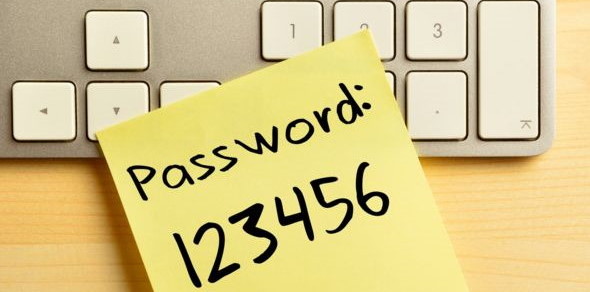 1
3
Password:
123456